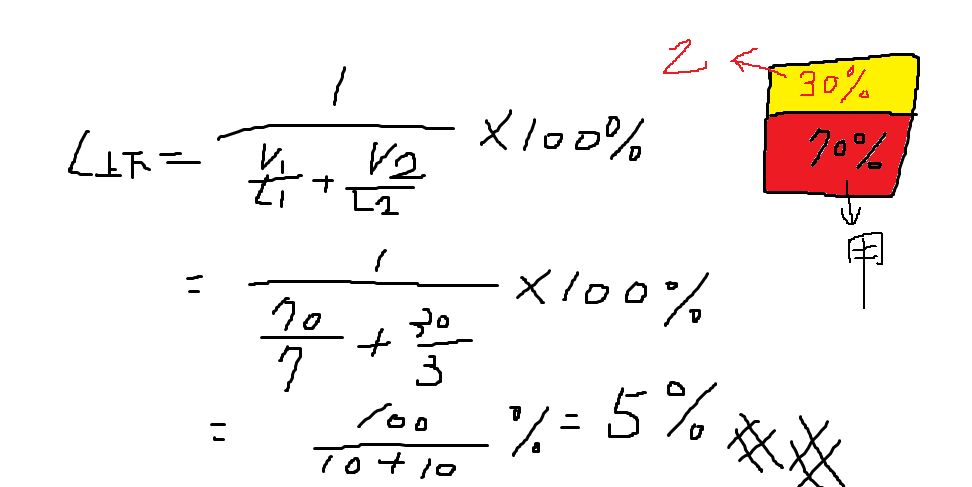 L上下 = 1 / (V1/L1 + V2/L2) ×100%
= 1 / (70/7 + 30/3) ×100%
= 100 / (10+10) % = 5%
乙 ← 30%
70%